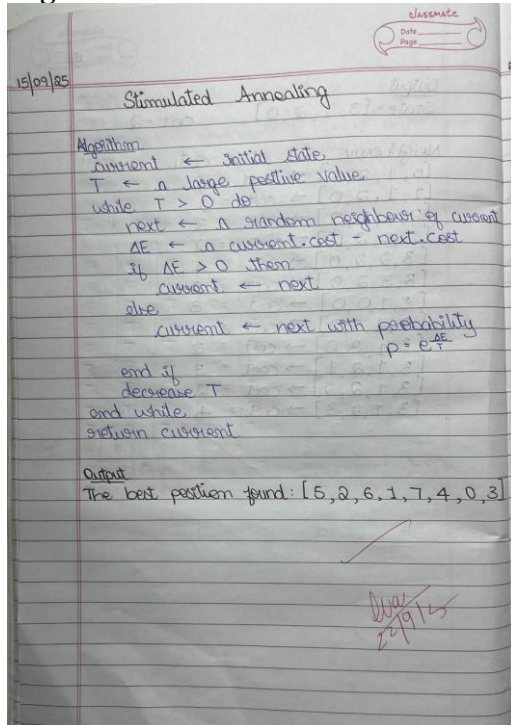 classmate
Date
Page
15/09/25
Stimulated Annealing
Algorithm
current ← initial state
T ← a large positive value
while T > 0 do
next ← a random neighbour of current
ΔE ← a current.cost - next.cost
if ΔE > 0 then
current ← next
else
current ← next with probability
p = e^ΔE/T
end if
decrease T
end while
return current
Output
The best position found: [5, 2, 6, 1, 7, 4, 0, 3]
22/9/25